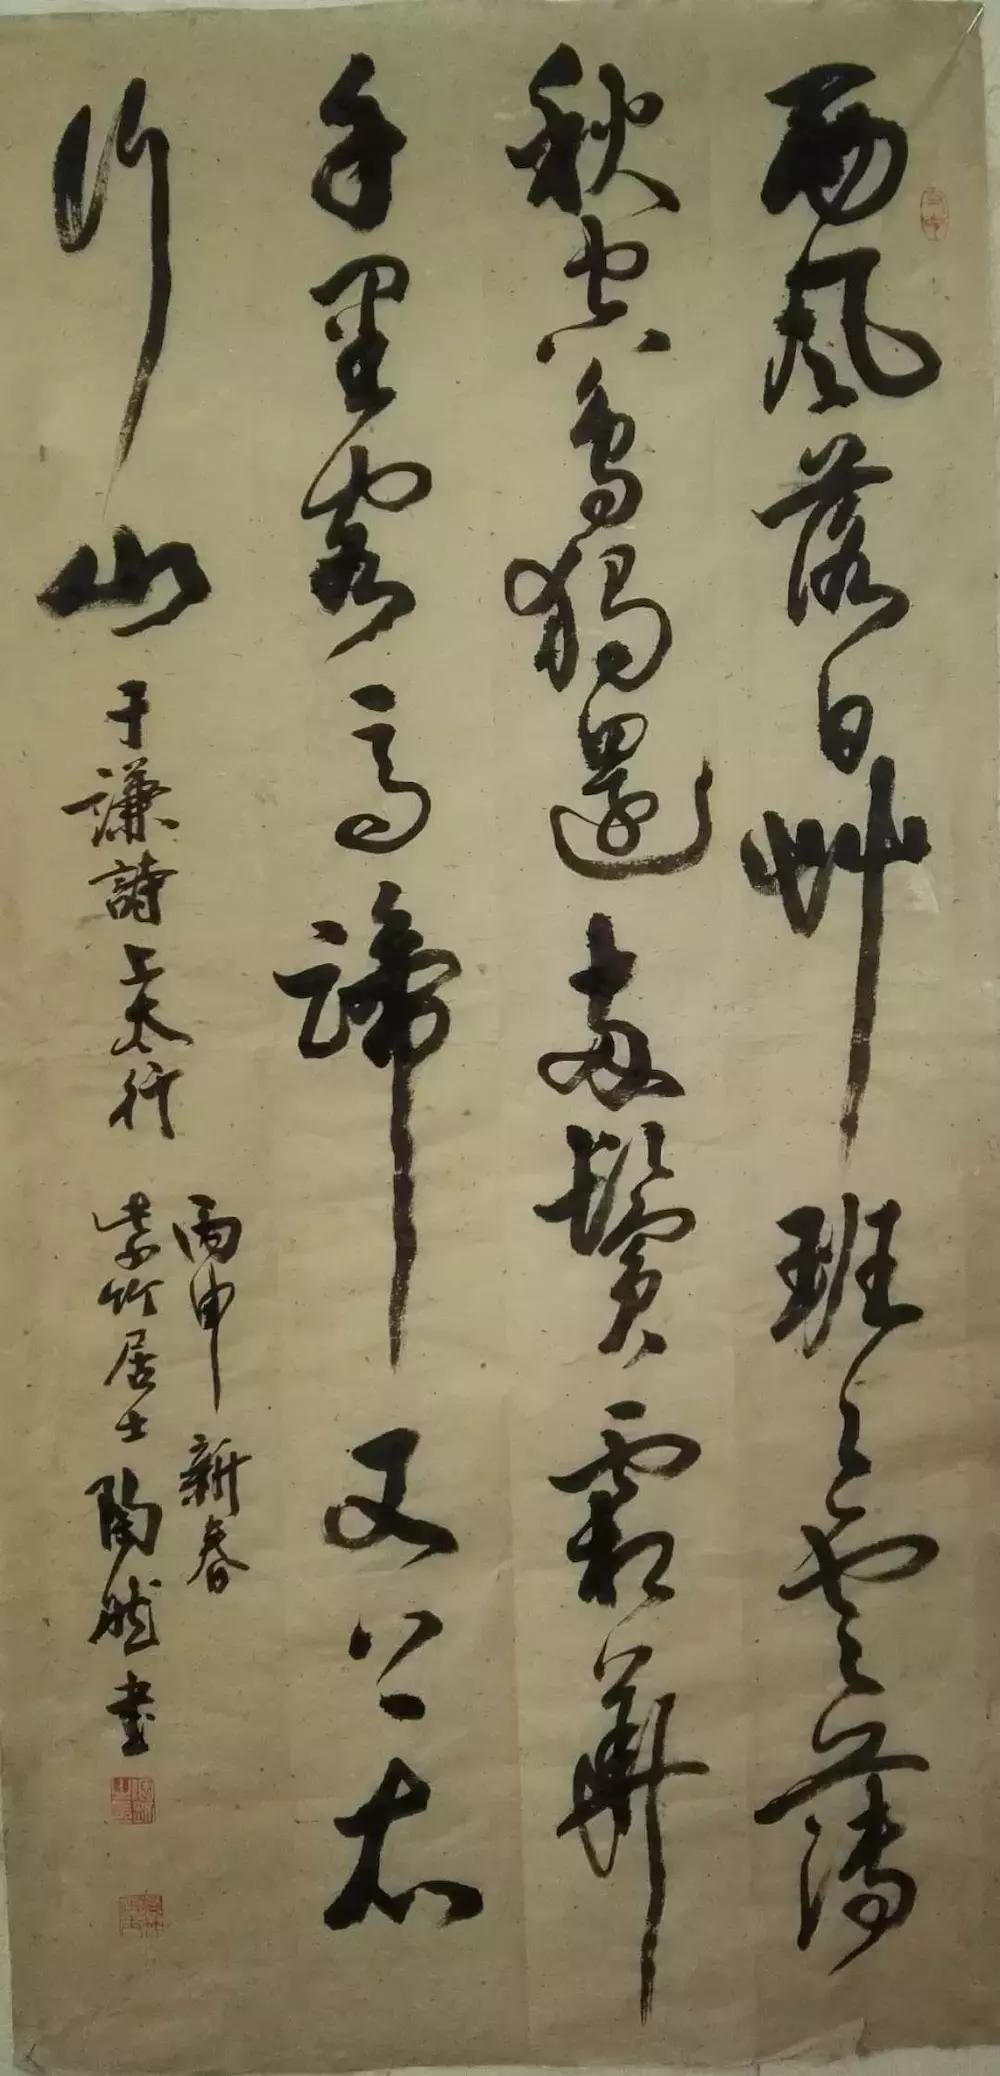 西風落日艸班々雲薄
秋空鳥獨還兩鬢霜華
千里客馬蹄又上太
行山
于謙詩上太行
丙申新春
紫竹居士陶然書